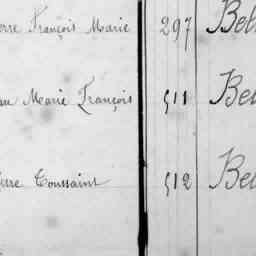 erre François Marie 297
Marie François 511
erre Toussaint 512